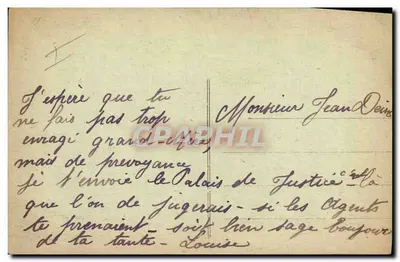 J'espère que tu
ne fais pas trop
enragi grand-mère,
mais de prevoyance
je t'envoie le Palais de Justice - c'est là
que l'on de jugerais - si les Agents
te prenaient - soit bien sage bonjour
de ta tante - Louise
Monsieur Jean